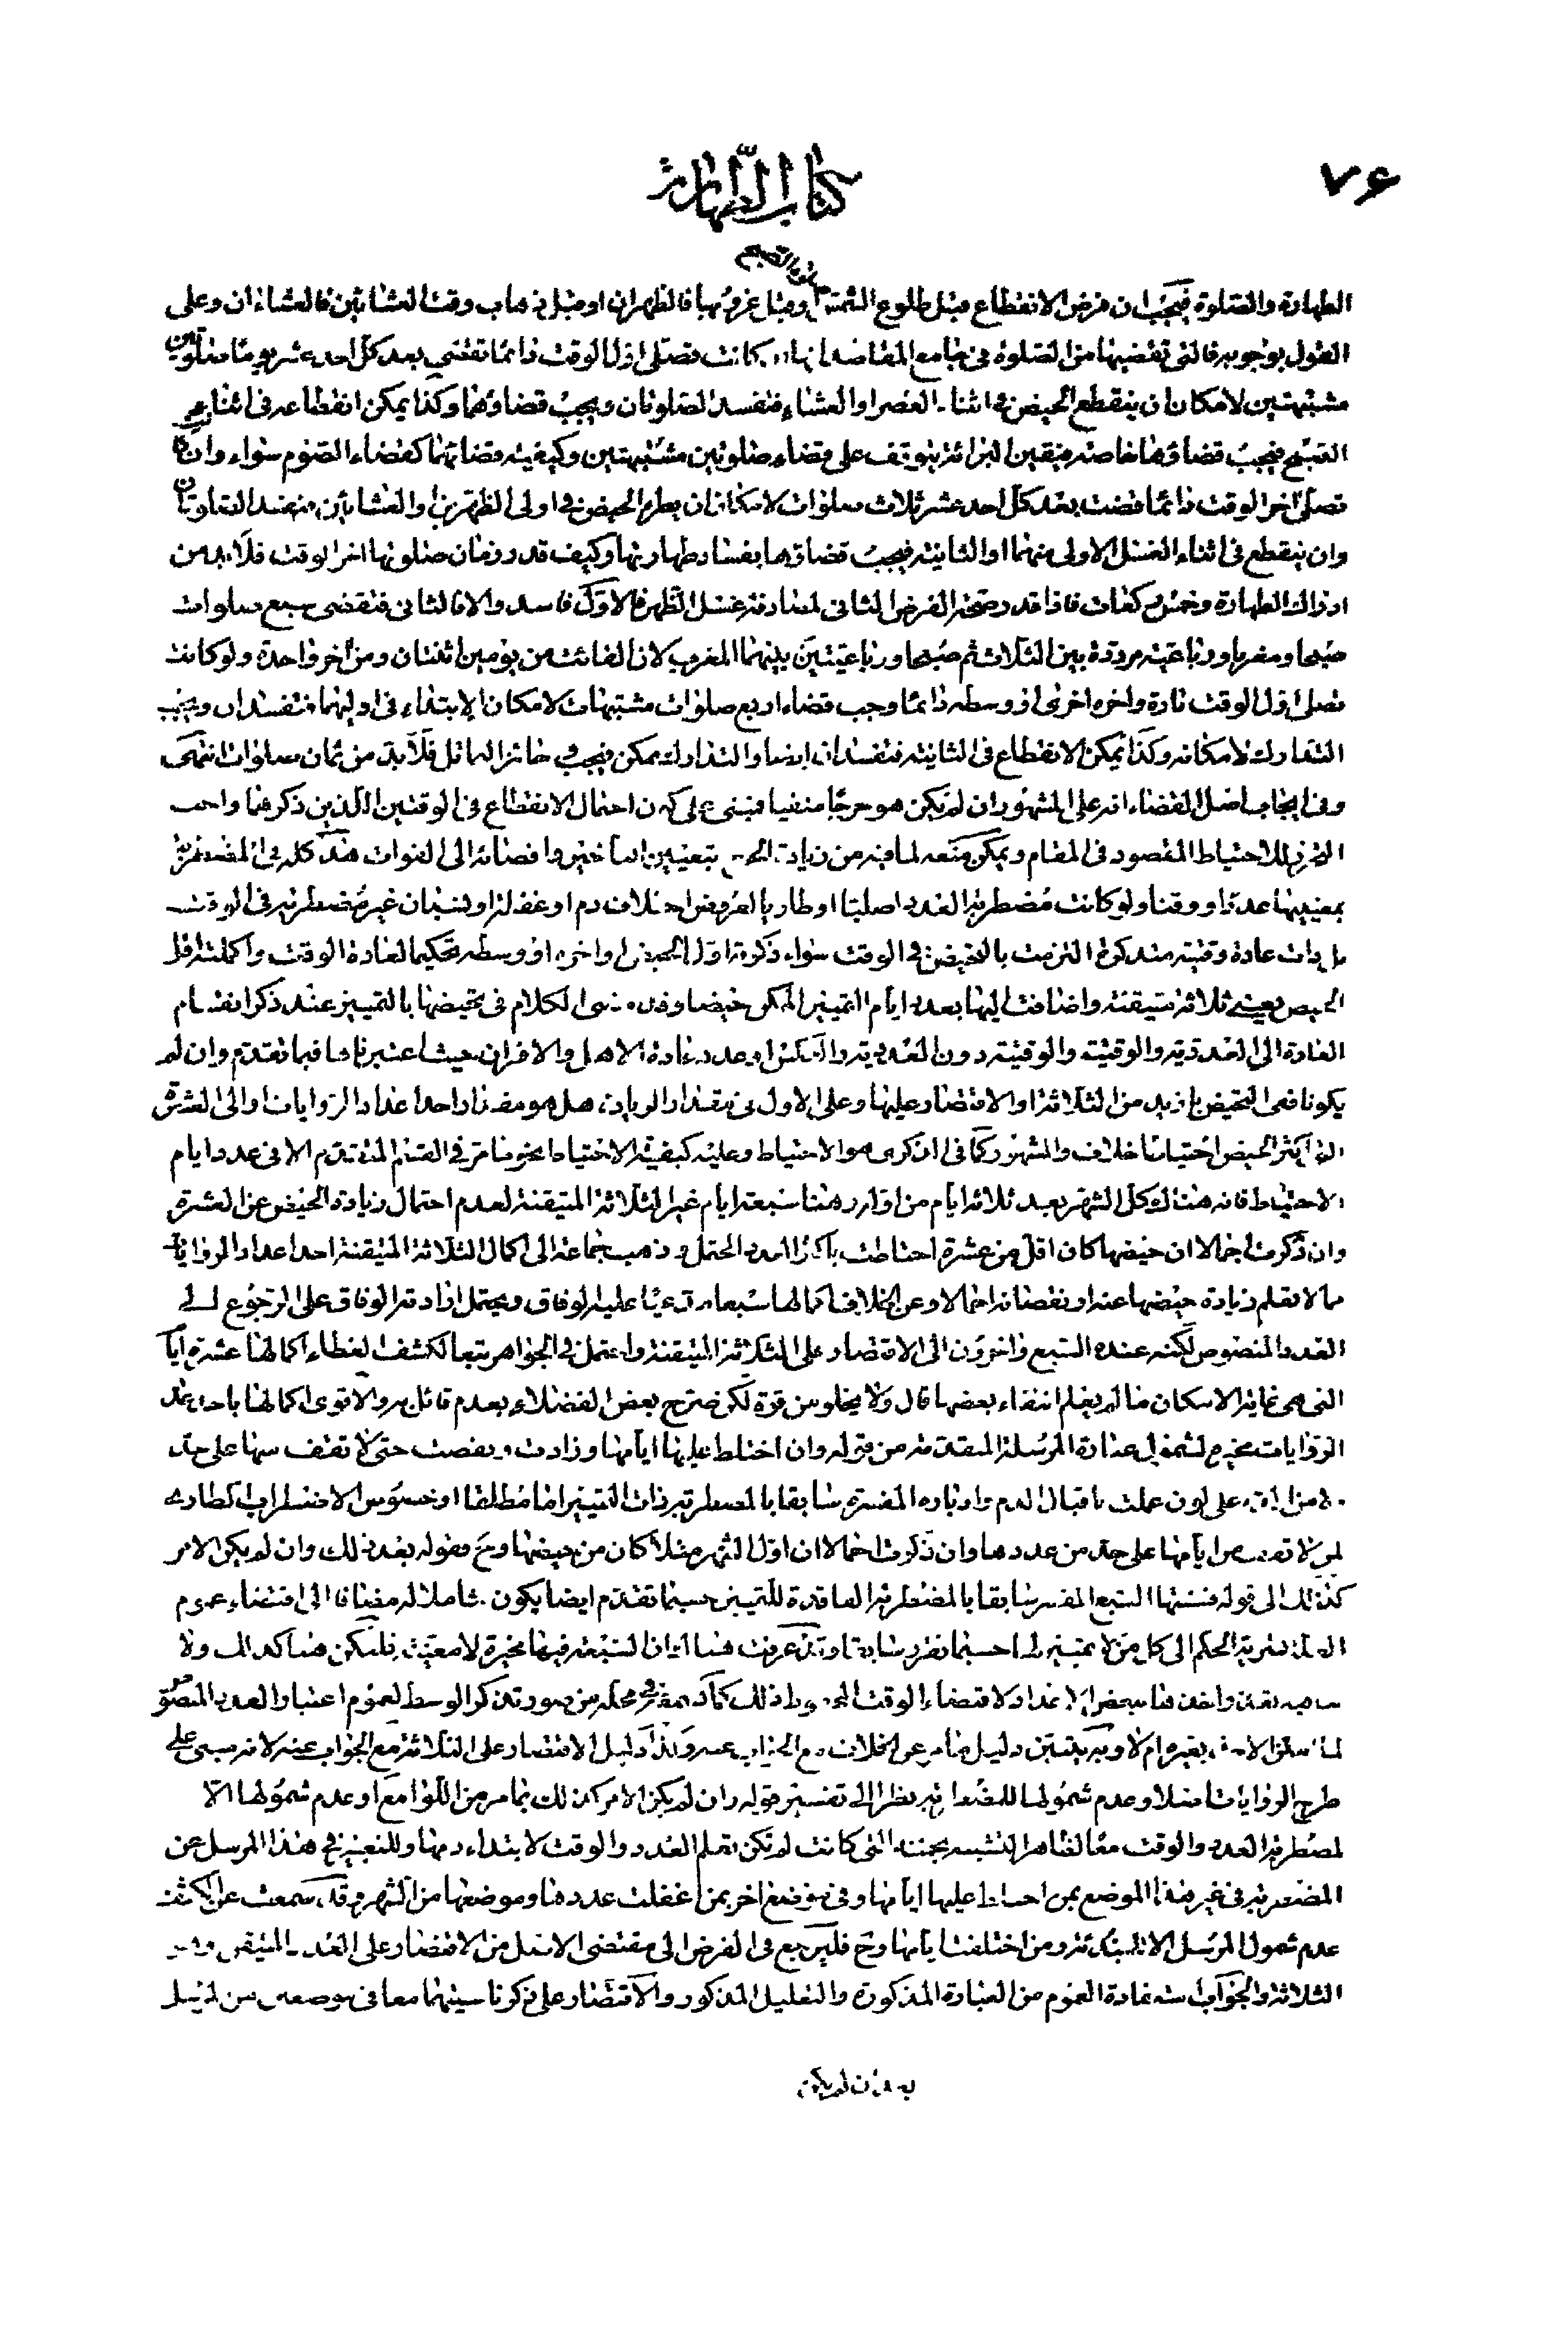 ٧۶
كتاب الطهارة
فالصبح
الطهارة والصلوة فيجب ان فرض الانقطاع قبل طلوع الشمس وقبل غروبها فالظهران او قبل ذهاب وقت العشائين فالعشاءان وعلى
القول بوجوبه فالتى تقضيها من الصلوة فى جامع المقاصد انها ان كانت تصلى اول الوقت دائما تقضى بعد كل احد عشر يوما صلوتين
مشتبهتين لامكان ان ينقطع الحيض فى اثناء العصر او العشاء فتفسد الصلوتان ويجب قضاؤهما وكذا يمكن انقطاعه فى اثناء
الصبح فيجب قضاؤها خاصة فيقين البرائة يتوقف على قضاء صلوتين مشتبهتين وكيفية قضائهما كقضاء الصوم سواء وان
تصلى اخر الوقت دائما قضت بعد كل احد عشر ثلاث صلوات لامكان ان يطرء الحيض فى اولى الظهرين او العشائين فتفسد الصلوتان
وان ينقطع فى اثناء الغسل الاولى منهما او الثانية فيجب قضاؤهما بفساد طهارتها وكيف قدر زمان صلوتها اخر الوقت فلا بد من
ادراك الطهارة وخمس ركعات فاذا قدر صحة الفرض الثانى لمصادفة غسل الظهر فالاول فاسد والا فالثانى فتقضى سبع صلوات
صبحا ومغربا ورباعية مرددة بين الثلاث ثم صبحا ورباعيتين بينهما المغرب لان الفائت من يومين اثنتان ومن آخر واحدة ولو كانت
تصلى اول الوقت تارة واخره اخرى او وسطه دائما وجب قضاء اربع صلوات مشتبهات لامكان الابتداء فى اوليهما فتفسدان ويجب
التدارك لامكانه وكذا يمكن الانقطاع فى الثانية فتفسدان ايضا والتدارك ممكن فيجب فلا بد من ثمان صلوات
وفى ايجاب اصل القضاء انه على المشهور ان لم يكن هو حرجا منفيا فمبنى على كون احتمال الانقطاع فى الوقتين اللذين ذكرهما واجب
للاحتياط المقصود فى المقام ويمكن منعه لما فيه من زيادة بتعيين وافضائه الى الفوات هذا كله فى المضطربة
بمعنييها عددا ووقتا ولو كانت مضطربة العدد اصليا او طاريا لعروض اختلاف دم او غفلة او نسيان غير مضطربة فى الوقت
بل ذات عادة وقتية متذكرة التزمت بالتحيض فى الوقت سواء ذكرت اول الحيض او اخره او وسطه تحكيما لعادة الوقت واكملته اقل
الحيض يعنى ثلاثة متيقنة واضافت اليها بعدد ايام التمييز الممكن حيضا وقد الكلام فى تحيضها بالتمييز عند ذكر اقسام
العادة الى العددية والوقتية والوقتية دون العددية وعدد عادة الاهل والاقران حيث اعتبرناها فيما تقدم وان لم
يكونا ففى التحيض بازيد من الثلاثة او الاقتصار عليها وعلى الاول فى مقدار الزيادة هل هو مقدار احد اعداد الروايات او الى العشرة
اكثر الحيض احتياطا خلاف والمشهور كما فى الذكرى هو الاحتياط وعليه كيفية الاحتياط بنحو ما مر فى القسم المتقدم الا فى عدد ايام
الاحتياط فانه هناك كل الشهر بعد ثلاثة ايام من اوله وهنا سبعة ايام غير الثلاثة المتيقنة لعدم احتمال زيادة الحيض عن العشرة
وان ذكرت اجمالا ان حيضها كان اقل من عشرة احتاطت باكثر العدد المحتمل وذهب جماعة الى اكمال الثلاثة المتيقنة احد اعداد الروايات
ما لا تعلم زيادة حيضها عنه او نقصانه اجمالا وعن الخلاف اكمالها سبعا مدعيا عليه الوفاق ويحتمل ارادته الوفاق على الرجوع الى
العدد المنصوص لكنه عنده السبع واخرون الى الاقتصار على الثلاثة المتيقنة واحتمل فى الجواهر تبعا لكشف الغطاء اكمالها عشرة
التى هى غاية الامكان ما لم يعلم انتفاء بعضها قال ولا يخلو من قوة لكن صرح بعض الفضلاء بعدم قائل به والاقوى اكمالها باحد
الروايات مخيرة لشمول عبارة المرسلة المتقدمة من قوله وان اختلط عليها ايامها وزادت ونقصت حتى لا تقف منها على حد
ولا من الدم على لون عملت باقبال الدم وادباره المفسرة سابقا بالمضطربة ذات التمييز اما مطلقا او خصوص الاضطراب
ايامها على حد من عددها وان ذكرت اجمالا ان اول الشهر مثلا كان من حيضها وح فقوله بعد ذلك وان لم يكن الامر
كذلك الى قوله فسنتها السبع المفسر سابقا بالمضطربة الفاقدة للتمييز حسبما تقدم ايضا يكون شاملا له مضافا الى اقتضاء عموم
الحكم الى كل من لا تمييز لها حسبما تقرر سابقا وقد عرفت هنا ان السبعة فيها مخيرة لا معينة فليكن هنا كذلك ولا
لاقتضاء الوقت ذلك كما مر فى محله من صورة تذكر الوسط لعموم اعتبار العدد المنصوص
بغيره ام لا وبه يتبين دليل ما مر عن الخلاف مع الجواب عنه وكذا دليل الاقتصار على الثلاثة مع الجواب عنه لانه مبنى على
طرح الروايات اصلا وعدم شمولها للمضطربة نظرا الى تفسير قوله وان لم يكن الامر كذلك بما مر من اللوامع او عدم شمولها الا
لمضطربة العدد والوقت معا لظاهر التى كانت لم تكن تعلم العدد والوقت لابتداء دمها وللتعبير فى هذا المرسل عن
المضطربة فى غير هذا الموضع بمن اختلط عليها ايامها وفى موضع اخر بمن غفلت عددها وموضعها من الشهر وقد سمعت عن الكشف
عدم شمول المرسل الا للمبتدئة ومن اختلفت ايامها وح فليرجع فى الفرض الى مقتضى الاصل من الاقتصار على العدد المتيقن
الثلاثة والجواب العموم من العبارة المذكورة والتعليل المذكور والاقتصار على ذكر ناسيتهما معا فى موضعين من المرسل